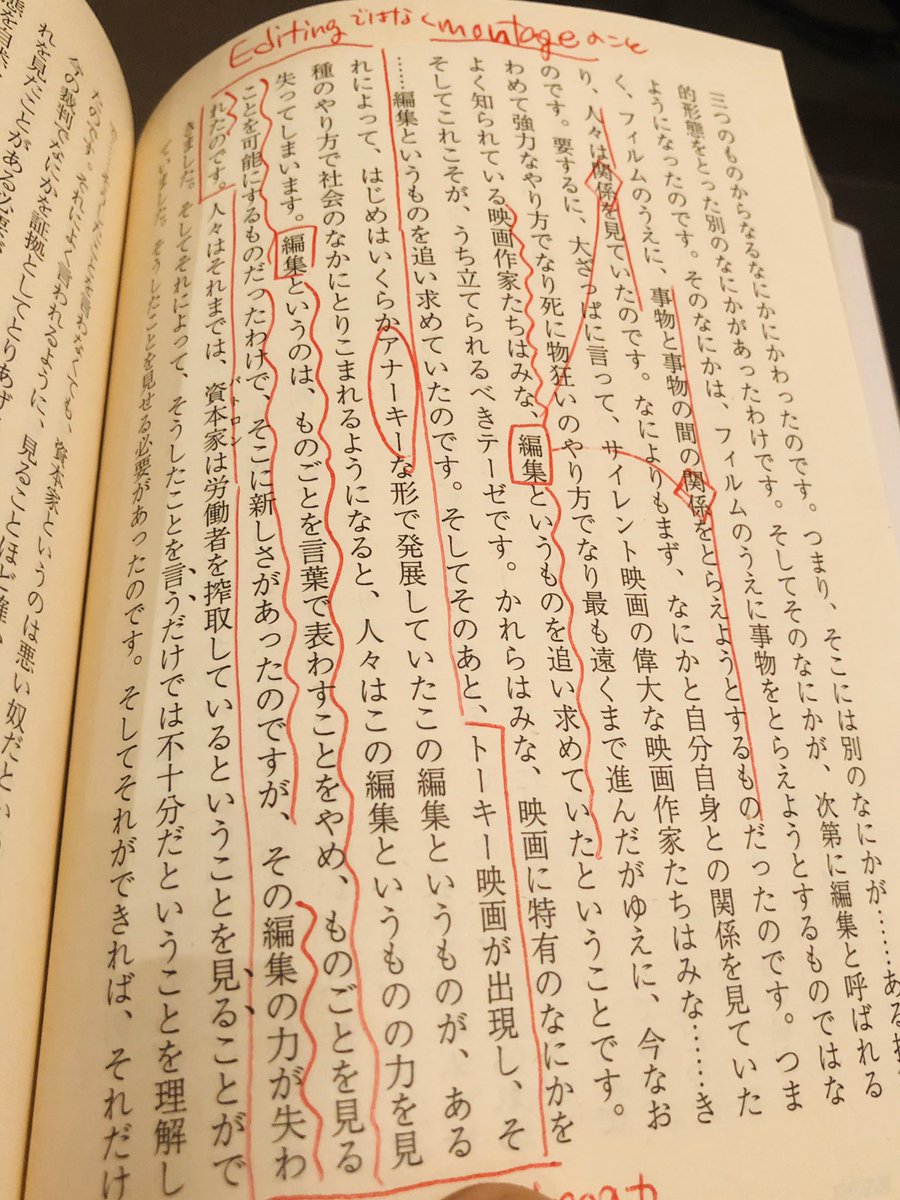 Editingではなくmontageのこと
三つのものからなるなにかにかわったのです。つまり、そこには別のなにかが……ある
的形態をとった別のなにかがあったわけです。そしてそのなにかが、次第に編集と呼ばれる
ようになったのです。そのなにかは、フィルムのうえに事物をとらえようとするものではな
く、フィルムのうえに、事物と事物の間の関係をとらえようとするものだったのです。つま
り、人々は関係を見ていたのです。なによりもまず、なにかと自分自身との関係を見ていた
のです。要するに、大ざっぱに言って、サイレント映画の偉大な映画作家たちはみな……き
わめて強力なやり方でなり死に物狂いのやり方でなり最も遠くまで進んだがゆえに、今なお
よく知られている映画作家たちはみな、編集というものを追い求めていたということです。
そしてこれこそが、うち立てられるべきテーゼです。かれらはみな、映画に特有のなにかを
……編集というものを追い求めていたのです。そしてそのあと、トーキー映画が出現し、そ
れによって、はじめはいくらかアナーキーな形で発展していたこの編集というものが、ある
種のやり方で社会のなかにとりこまれるようになると、人々はこの編集というものの力を見
失ってしまいます。編集というのは、ものごとを言葉で表わすことをやめ、ものごとを見る
ことを可能にするものだったわけで、そこに新しさがあったのですが、その編集の力が失わ
れたのです。人々はそれまでは、資本家は労働者を搾取しているということを見ることがで
パトロン
きました。そしてそれによって、そうしたことを言うだけでは不十分だということを理解し
ていました。そうしたことを見せる必要があったのです。そしてそれができれば、それだけ
ことを言わなくても、資本家というのは悪い奴だとい
たのです。それによく言われるように、見ることほど確
今の裁判でなにかを証拠としてとりあげ
れを見たことがある必要が